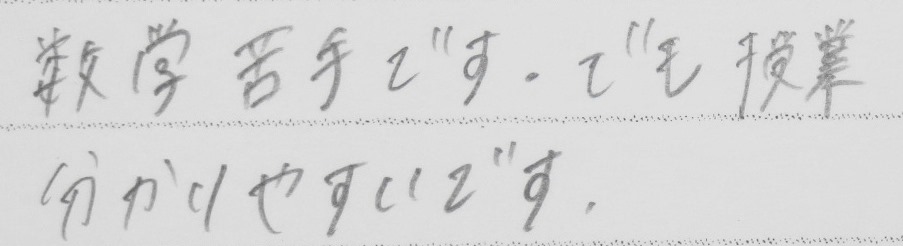 数学苦手です.でも授業
分かりやすいです.